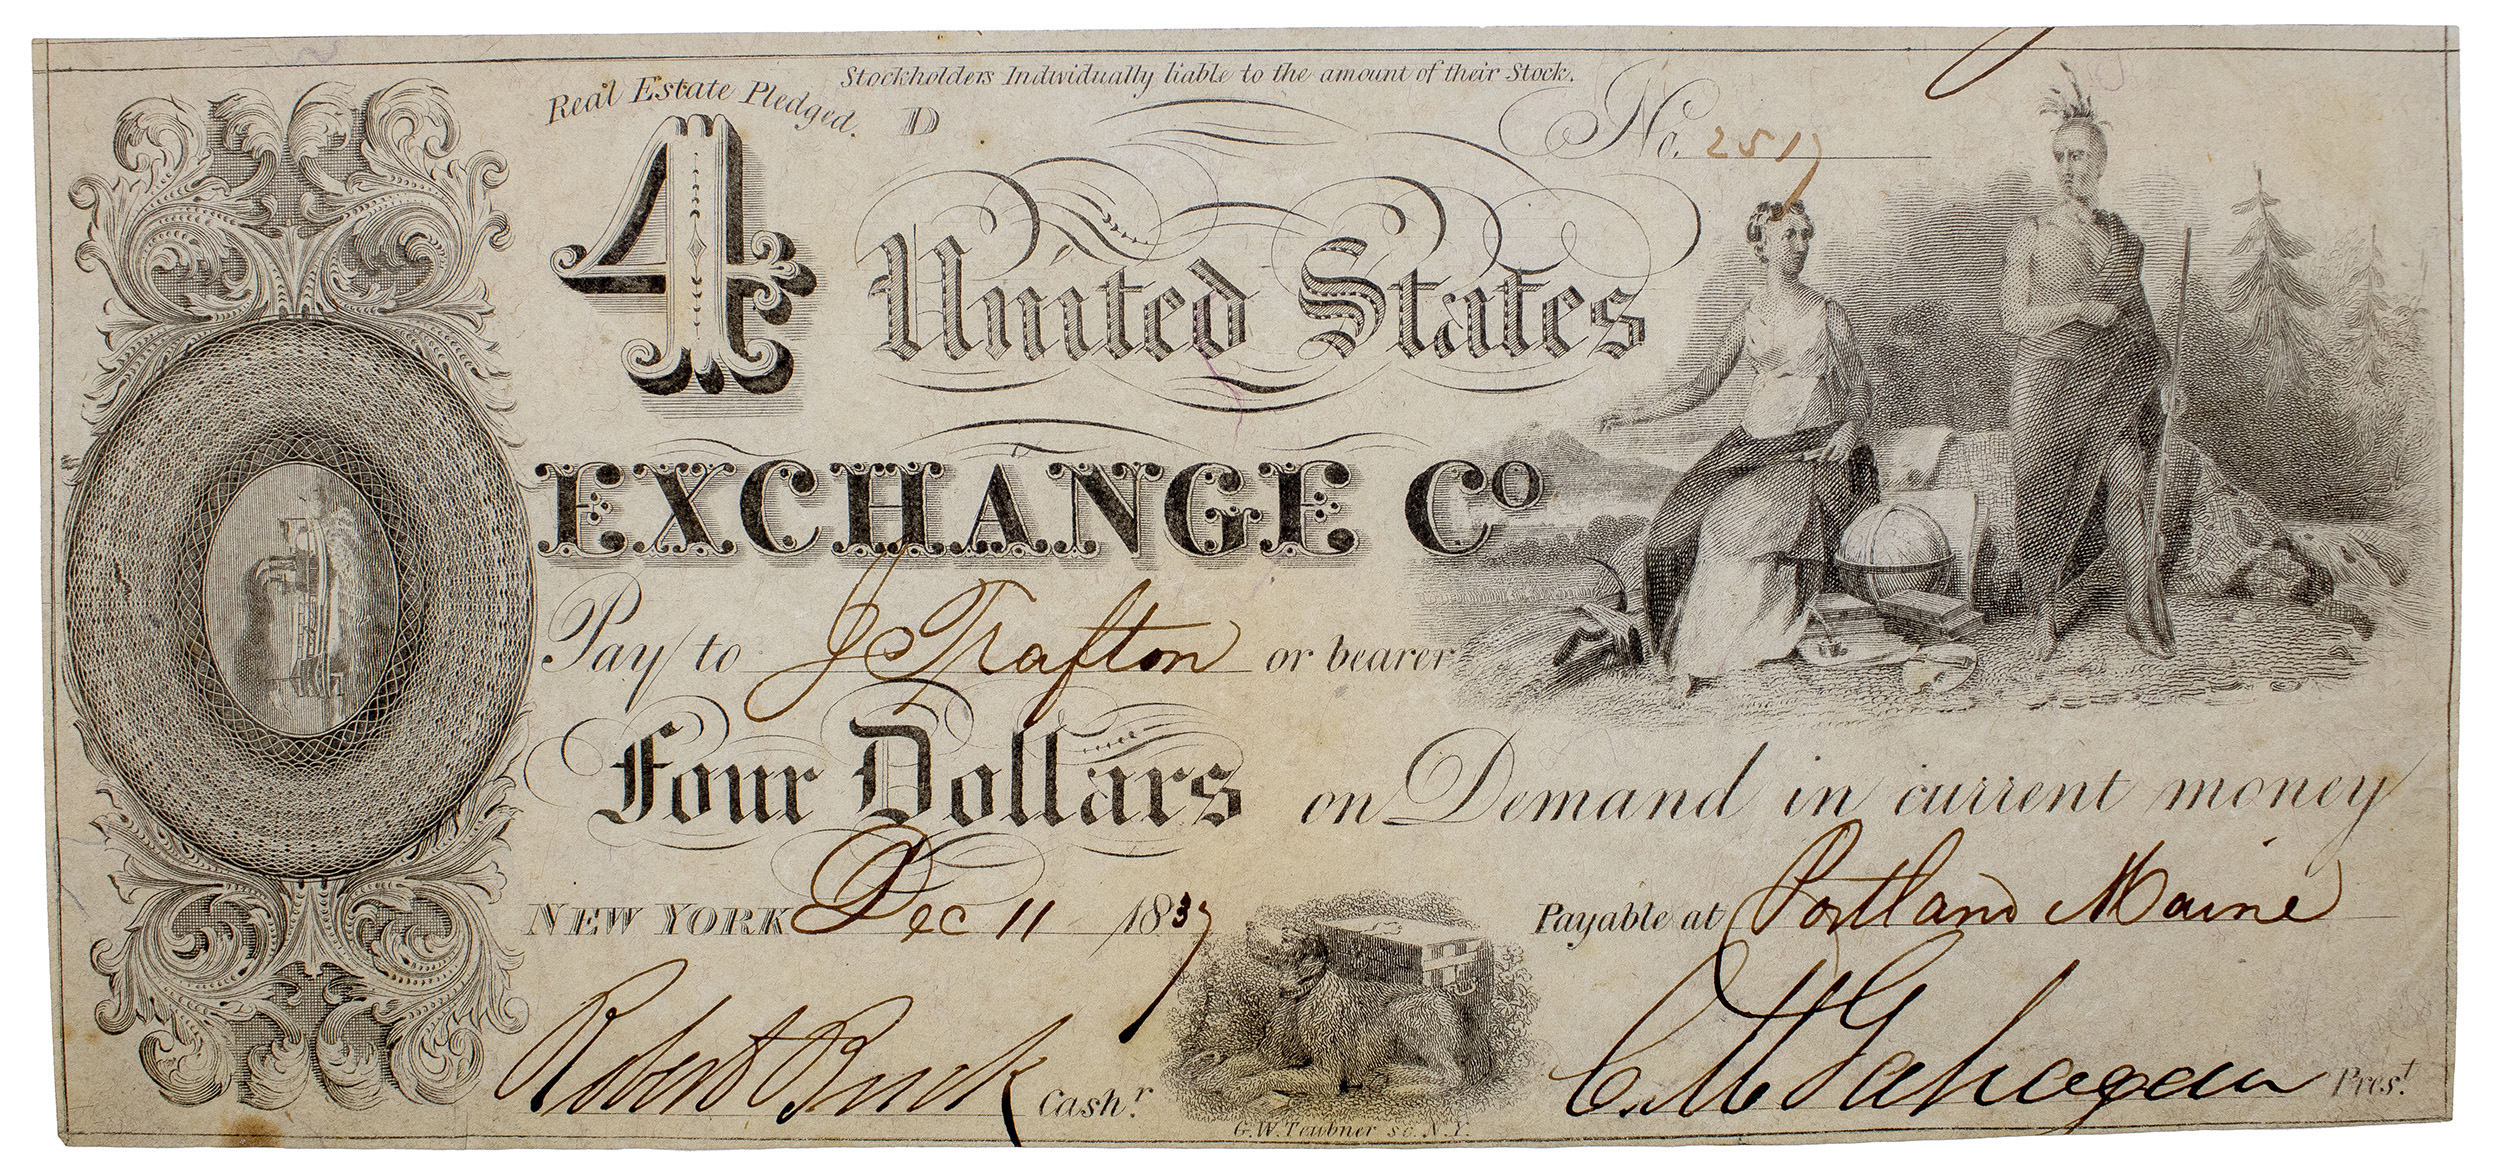 Stockholders Individually liable to the amount of their Stock.
Real Estate Pledged.
D
No. 2517
4 United States
EXCHANGE Co
Pay to J C Trafton or bearer
Four Dollars on Demand in current money
NEW YORK Dec 11 1837 Payable at Portland Maine
Robert Buck Cashr. C. M Gahagan Prest.
G.W. Teubner sc. N.Y.